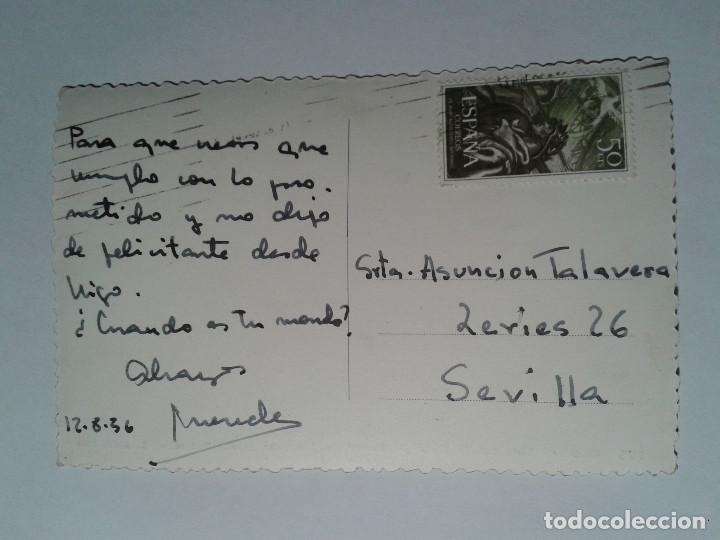 Para que veas que
cumplo con lo pro.
metido y no dejo
de felicitarte desde
Vigo.
¿Cuando es tu mando?
Abrazos
12.8.56
ESPAÑA
CORREOS
50
Srta. Asuncion Talavera
26
Sevilla
todocoleccion.net